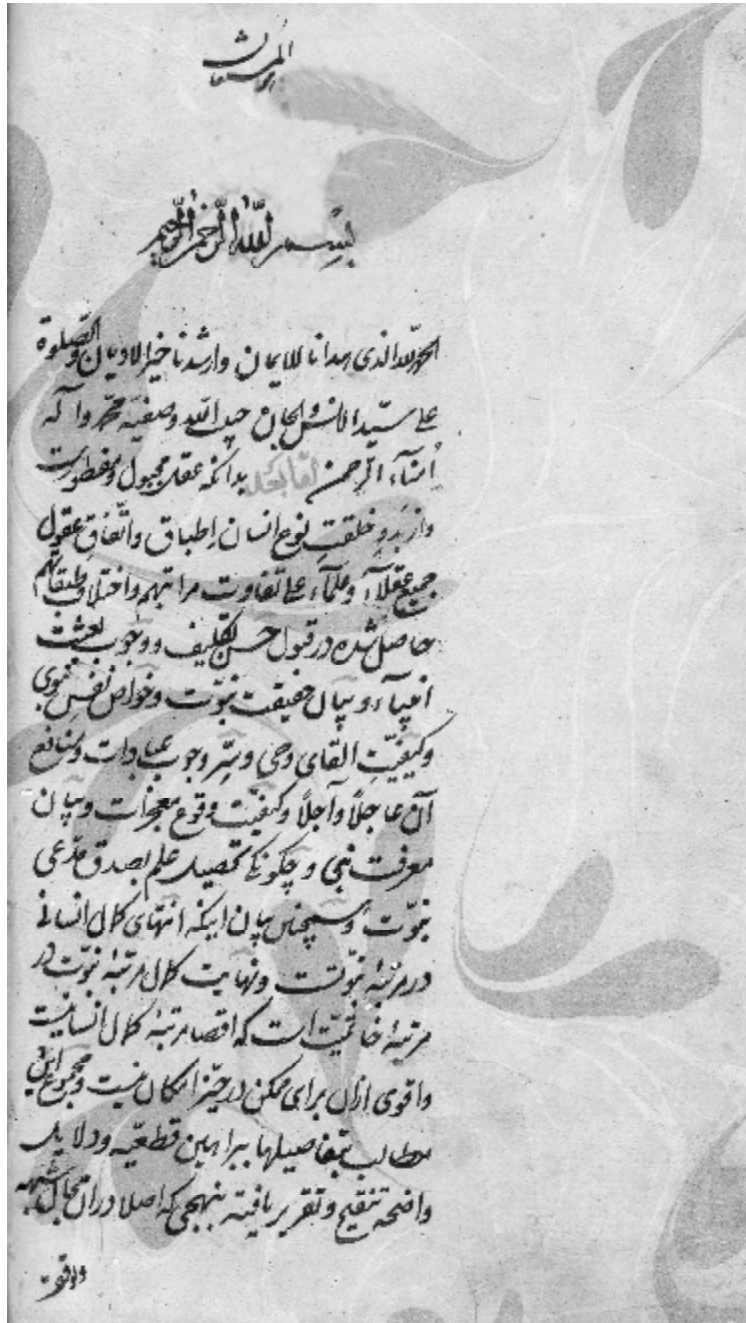 بسم الله الرحمن الرحيم
الحمد لله الذی هدانا للایمان وارشدنا خیر الادیان والصلوة
علی سید الانس والجان حبیب الله وصفیه محمد وآله
اُمناء الرحمن اما بعد بدانکه عقل مجبول ومفطورست
واز بدو خلقت نوع انسان اطباق واتّفاق عقول
جمیع عقلآء وعلمآء علی تفاوت مراتبهم واختلاف طبقاتهم
حاصل شده در قبول حسن تکلیف ووجوب بعثت
انبیآء وبیان حقیقت نبوّت وخواص نفس نبوی
وکیفیّتِ القای وحی وسِرّ وجوب عبادات ومنافع
آن عاجلاً وآجلاً وکیفیّت وقوع معجزات وبیان
معرفت نبی وچگونگی تحصیل علم بصدق مدّعی
نبوّت وهمچنین بیان اینکه انتهای کمال انسانی
در مرتبۀ نبوّتست ونهایت کمال مرتبۀ نبوّت در
مرتبۀ خاتمیّت است که اقصا مرتبۀ کمال انسانیت
واقوی ازان برای ممکن در حیّز امکان نیست ومجموع این
مطالب بتفاصیلها ببراهین قطعیّه ودلایل
واضحه تنقیح وتقریر یافته بنهجی که اصلا دران مجال شبهه